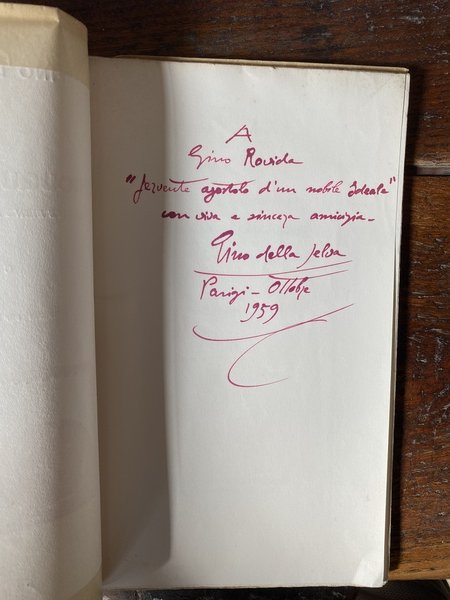 A
Gino Rovida
"fervente apostolo d'un nobile Ideale"
con viva e sincera amicizia -
Gino della Selva
Parigi - Ottobre
1959